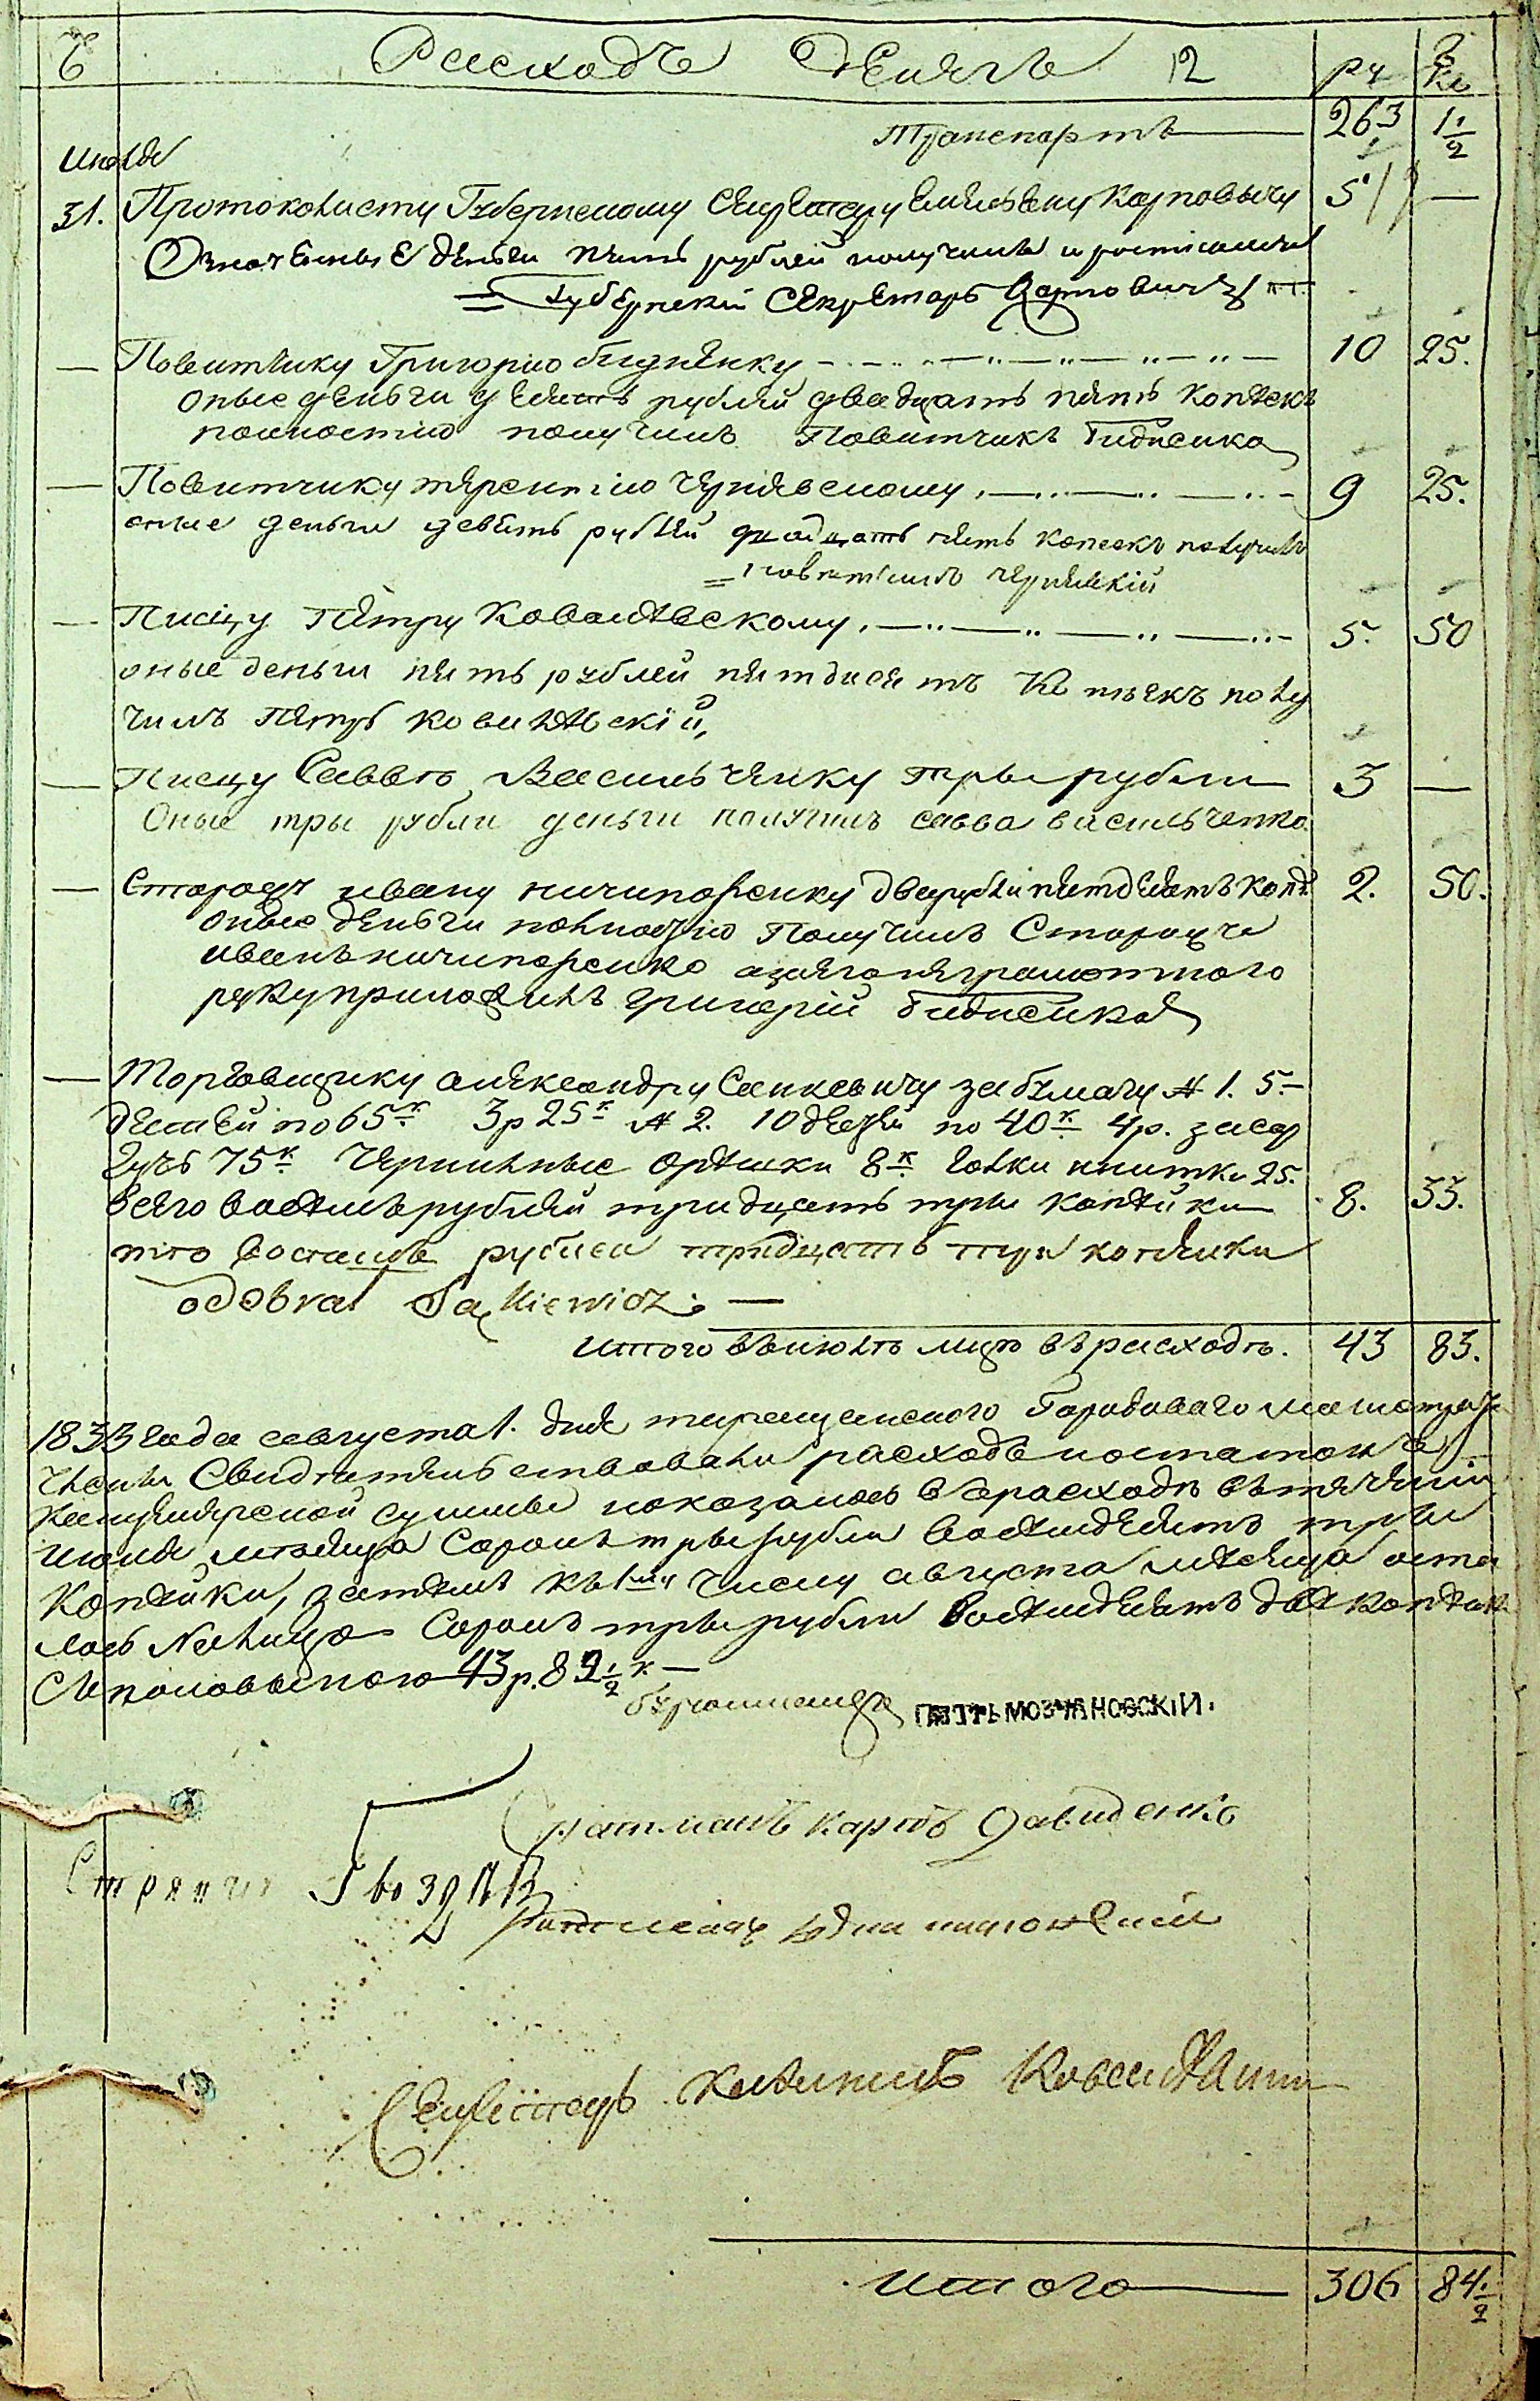 Расходъ Денегъ 12 ру ко
Транспортъ 263 1 1/2
июля
31. Протоколисту Губернскому Секретару Емельяну Карповичу 5 —
Означенные деньги пять рублей получилъ и росписался
Губернскій Секретарь Карповичъ
— Повитчику Григорию Гиденку 10 25.
оные деньги десять рублей двадцать пять копѣекъ
полностию получилъ Повитчикъ Гиденко
— Повитчику терентию Чернявскому. 9 25.
оные деньги девять рублей двадцать пять копеекъ получилъ
= повитчикъ чернявскій
— Писцу Петру Ковалѣвскому. 5. 50
оные деньги пять рублей пятдисятъ копѣекъ полу
чилъ Петръ ковалѣвскій,
— Писцу Саввѣ Васильченку тры рубли 3 —
Оные тры рубли деньги получилъ савва василченко
— Сторожу ивану ничипоренку два рубли пятдесятъ копѣ 2. 50.
оные деньги полностю Получилъ Сторожъ
иванъ ничипоренко а за его неграмотного
руку приложилъ григорій Гиденко
— Торговщику александру Санкевичу за бумагу № 1. 5.
дестей по 65 к. 3 р 25 к № 2. 10 дестей по 40 к. 4 р. за сур
гучъ 75 к Чернильные орѣшки 8 к. голки нитки 25.
всего восѣмъ рублей тридцать тры копѣйки 8. 33.
что восемъ рублей тридцать три копѣйки
odebrał Sankiewicz. —
Итого въ июлѣ м‑цѣ въ расходѣ. 43 83.
1833 года августа 1. дня таращанского Городоваго магистрата
члены Свидѣтельствовали расходъ и остатокъ
канцелярской суммы показалось въ расходѣ въ течении
июля мѣсяца Сорокъ тры рубли восѣмдесятъ тры
копѣйки, затѣмъ къ 1му числу августа мѣсяца оста
лось Налицо Сорокъ тры рубли восѣмдесятъ двѣ копѣйки
Съ половыною 43 р. 82 1/2 к —
бурмистръ
Ратманъ карпъ Давиденко
Стряпчій Гвоздев
Ратманъ
Секретарь
Итого 306 84 1/2